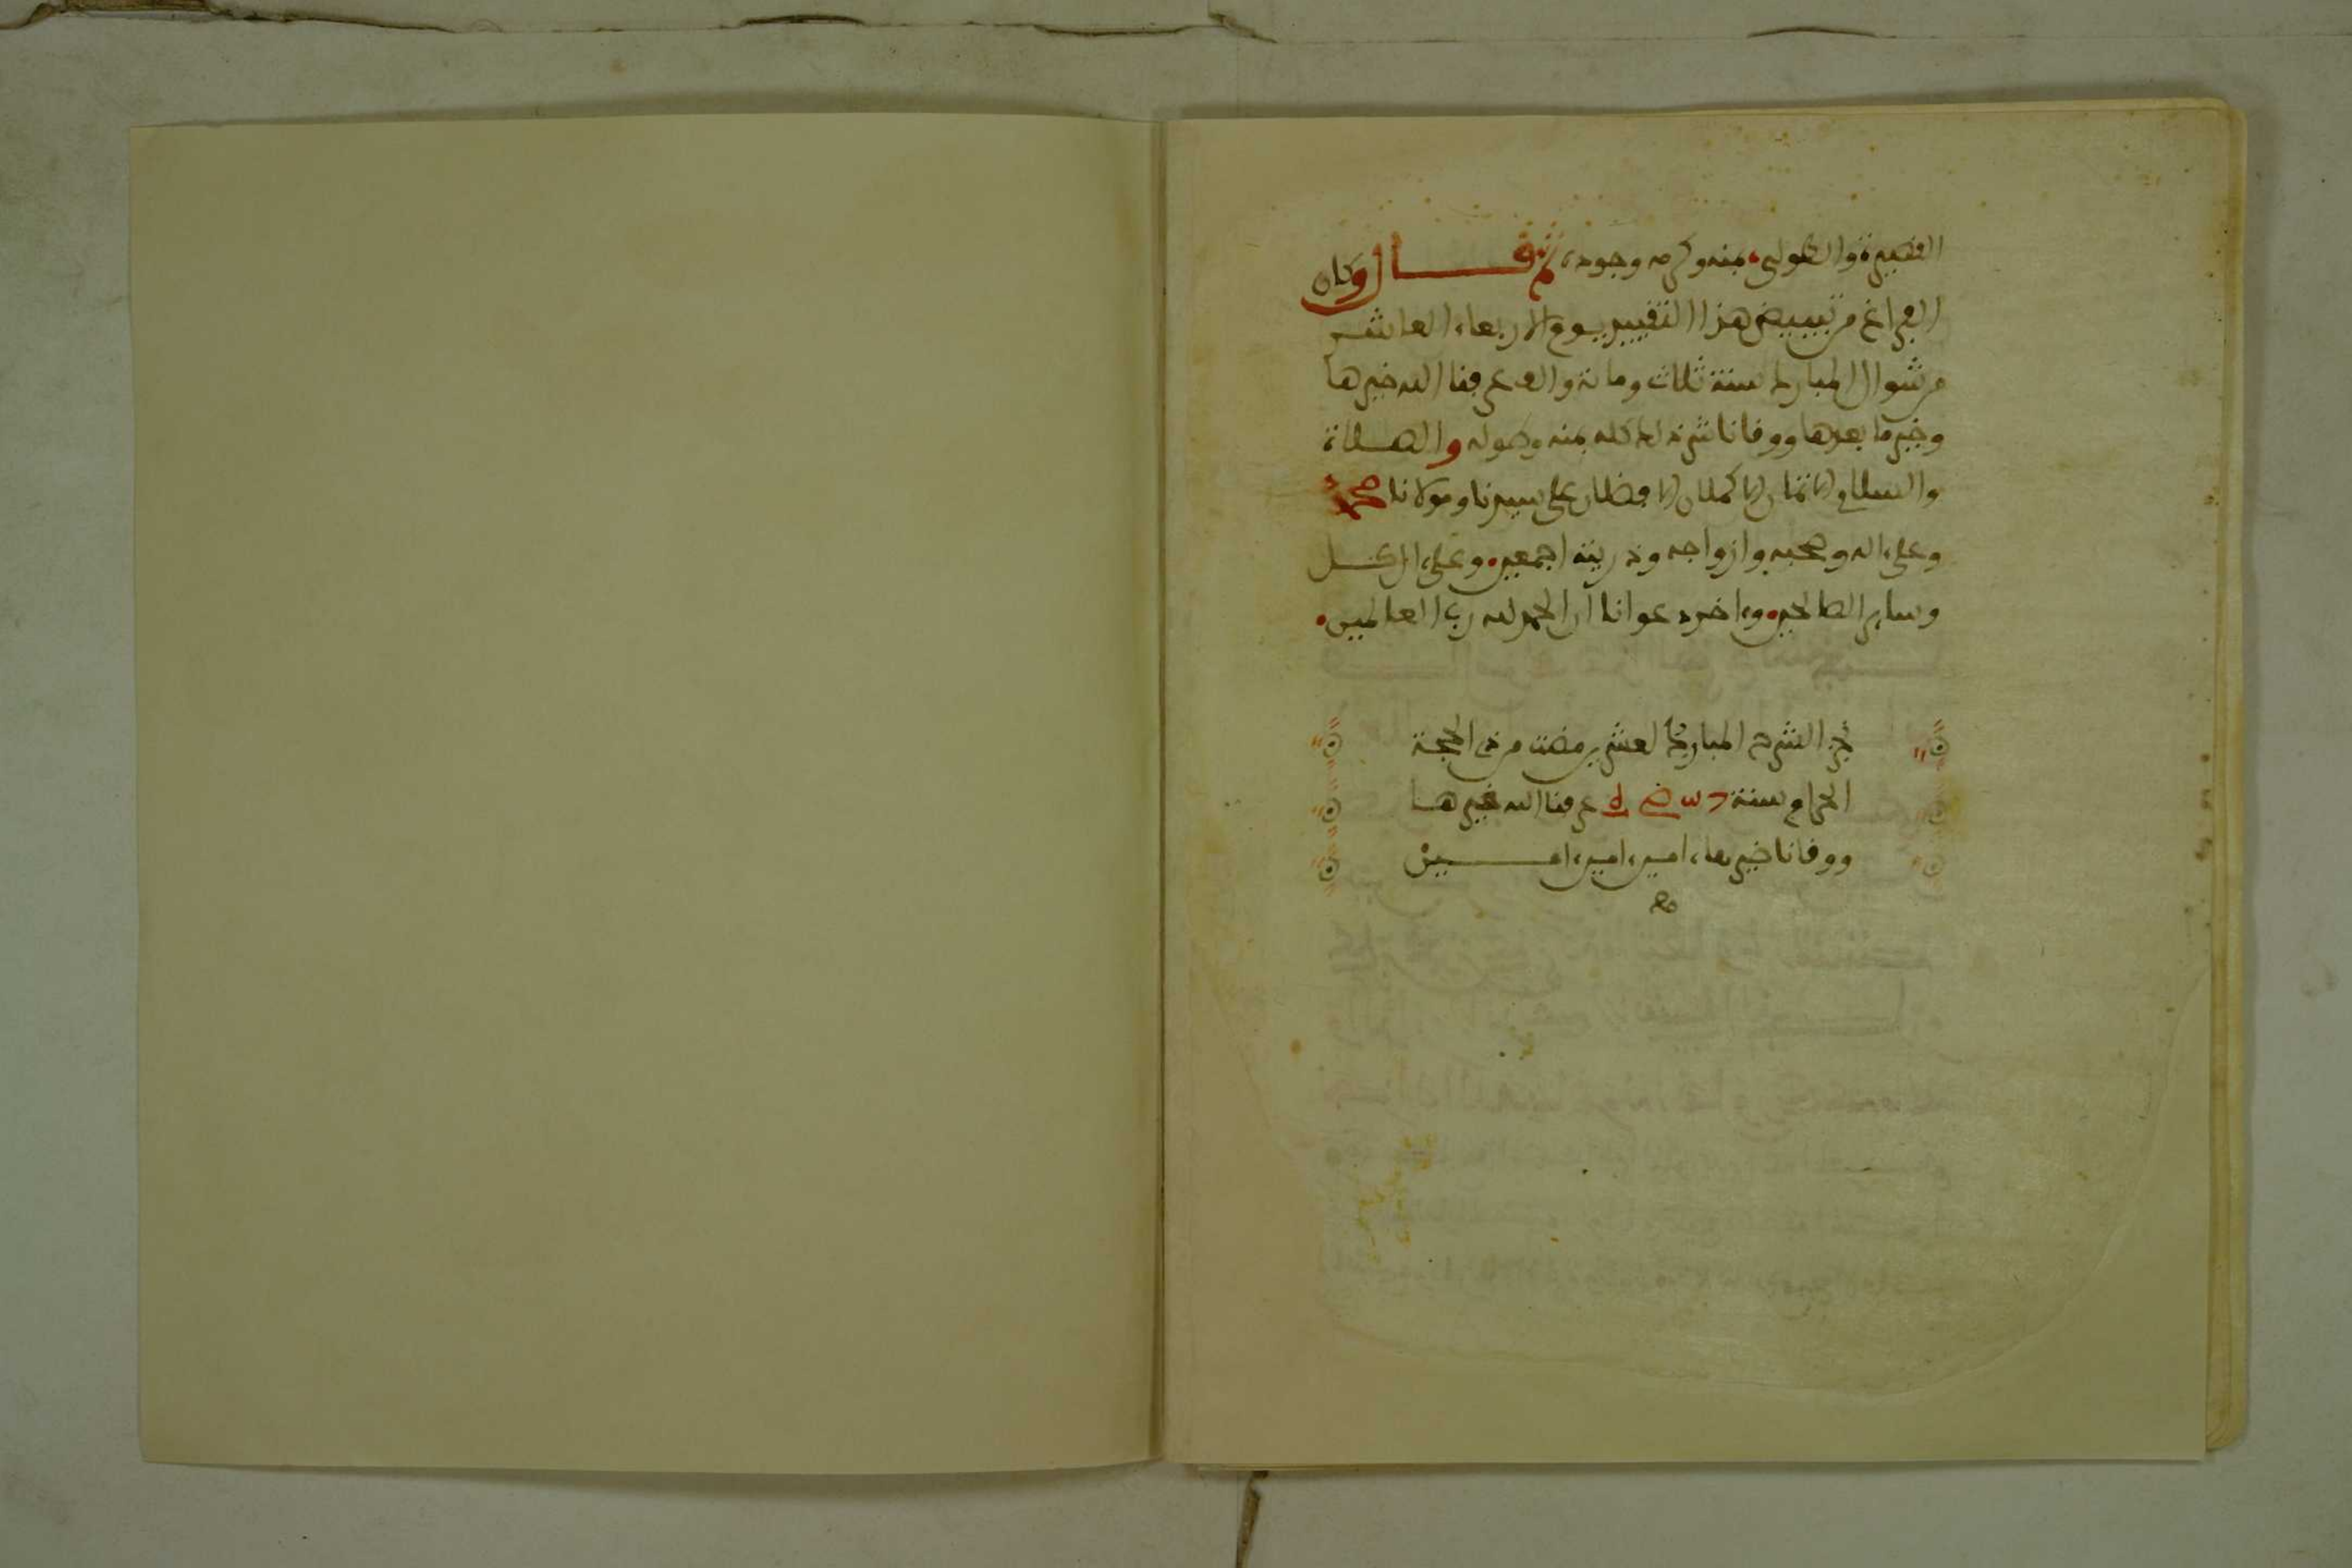 القصيرة والطولى، بمنه وكرمه وجوده، ثم قال وكان
الفراغ من تبييض هذا التقييد يوم الاربعاء العاشر
من شوال المبارك سنة ثلاث ومائة والف عرفنا الله خيرها
وخير ما بعدها ووقانا شر ذلك كله بمنه وطوله والصلاة
والسلام الاتمان الاكملان الافضلان على سيدنا ومولانا محمد
وعلى اله وصحبه وازواجه وذريته اجمعين، وعلى الكل
وساير الصالحين، وءاخر دعوانا ان الحمد لله رب العالمين.
نجز الشرح المبارك لعشر مضت من ذي الحجة
الحرام سنة عرفنا الله خيرها
ووقانا ضيرها، امين، امين، امين